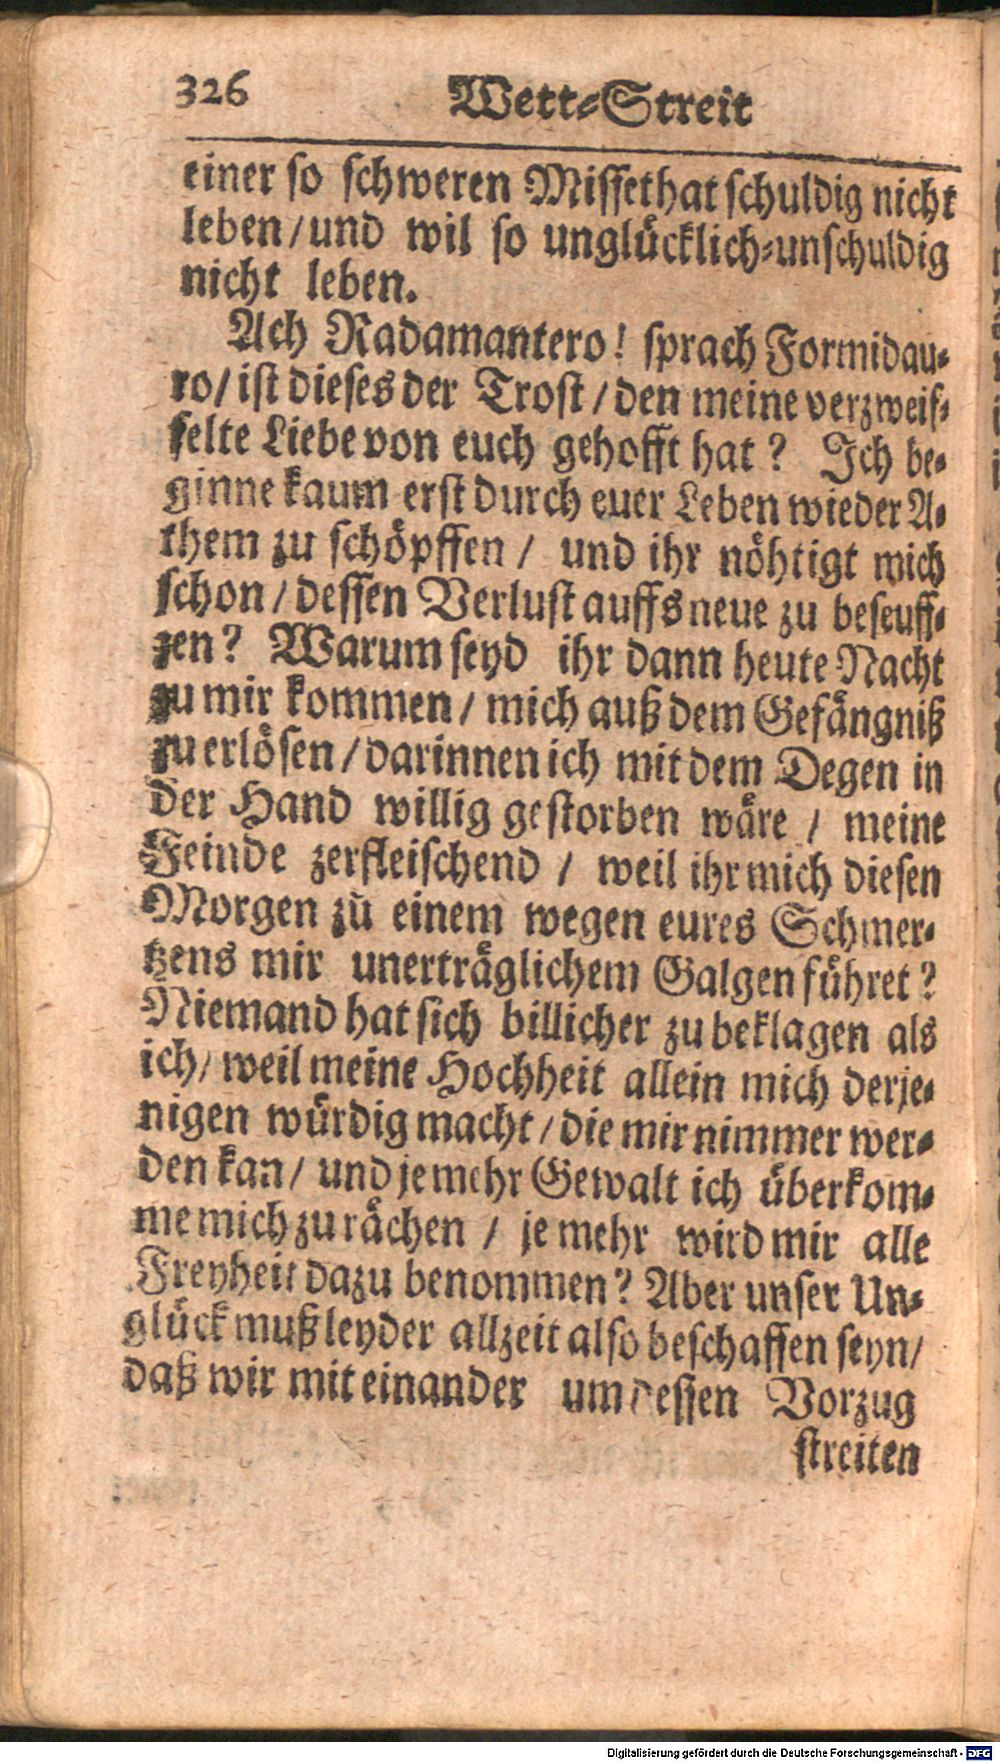 326 Wett-Streit
einer so schweren Missethat schuldig nicht
leben / und wil so unglücklich-unschuldig
nicht leben.
Ach Radamantero! sprach Formidau-
ro / ist dieses der Trost / den meine verzweif-
felte Liebe von euch gehofft hat? Ich be-
ginne kaum erst durch euer Leben wieder A-
them zu schöpffen / und ihr nöhtigt mich
schon / dessen Verlust auffs neue zu beseuff-
zen? Warum seyd ihr dann heute Nacht
zu mir kommen / mich auß dem Gefängniß
zu erlösen / darinnen ich mit dem Degen in
der Hand willig gestorben wäre / meine
Feinde zerfleischend / weil ihr mich diesen
Morgen zu einem wegen eures Schmer-
tzens mir unerträglichem Galgen führet?
Niemand hat sich billicher zu beklagen als
ich / weil meine Hochheit allein mich derje-
nigen würdig macht / die mir nimmer wer-
den kan / und je mehr Gewalt ich überkom-
me mich zu rächen / je mehr wird mir alle
Freyheit dazu benommen? Aber unser Un-
glück muß leyder allzeit also beschaffen seyn /
daß wir mit einander um dessen Vorzug
streiten
Digitalisierung gefördert durch die Deutsche Forschungsgemeinschaft - DFG